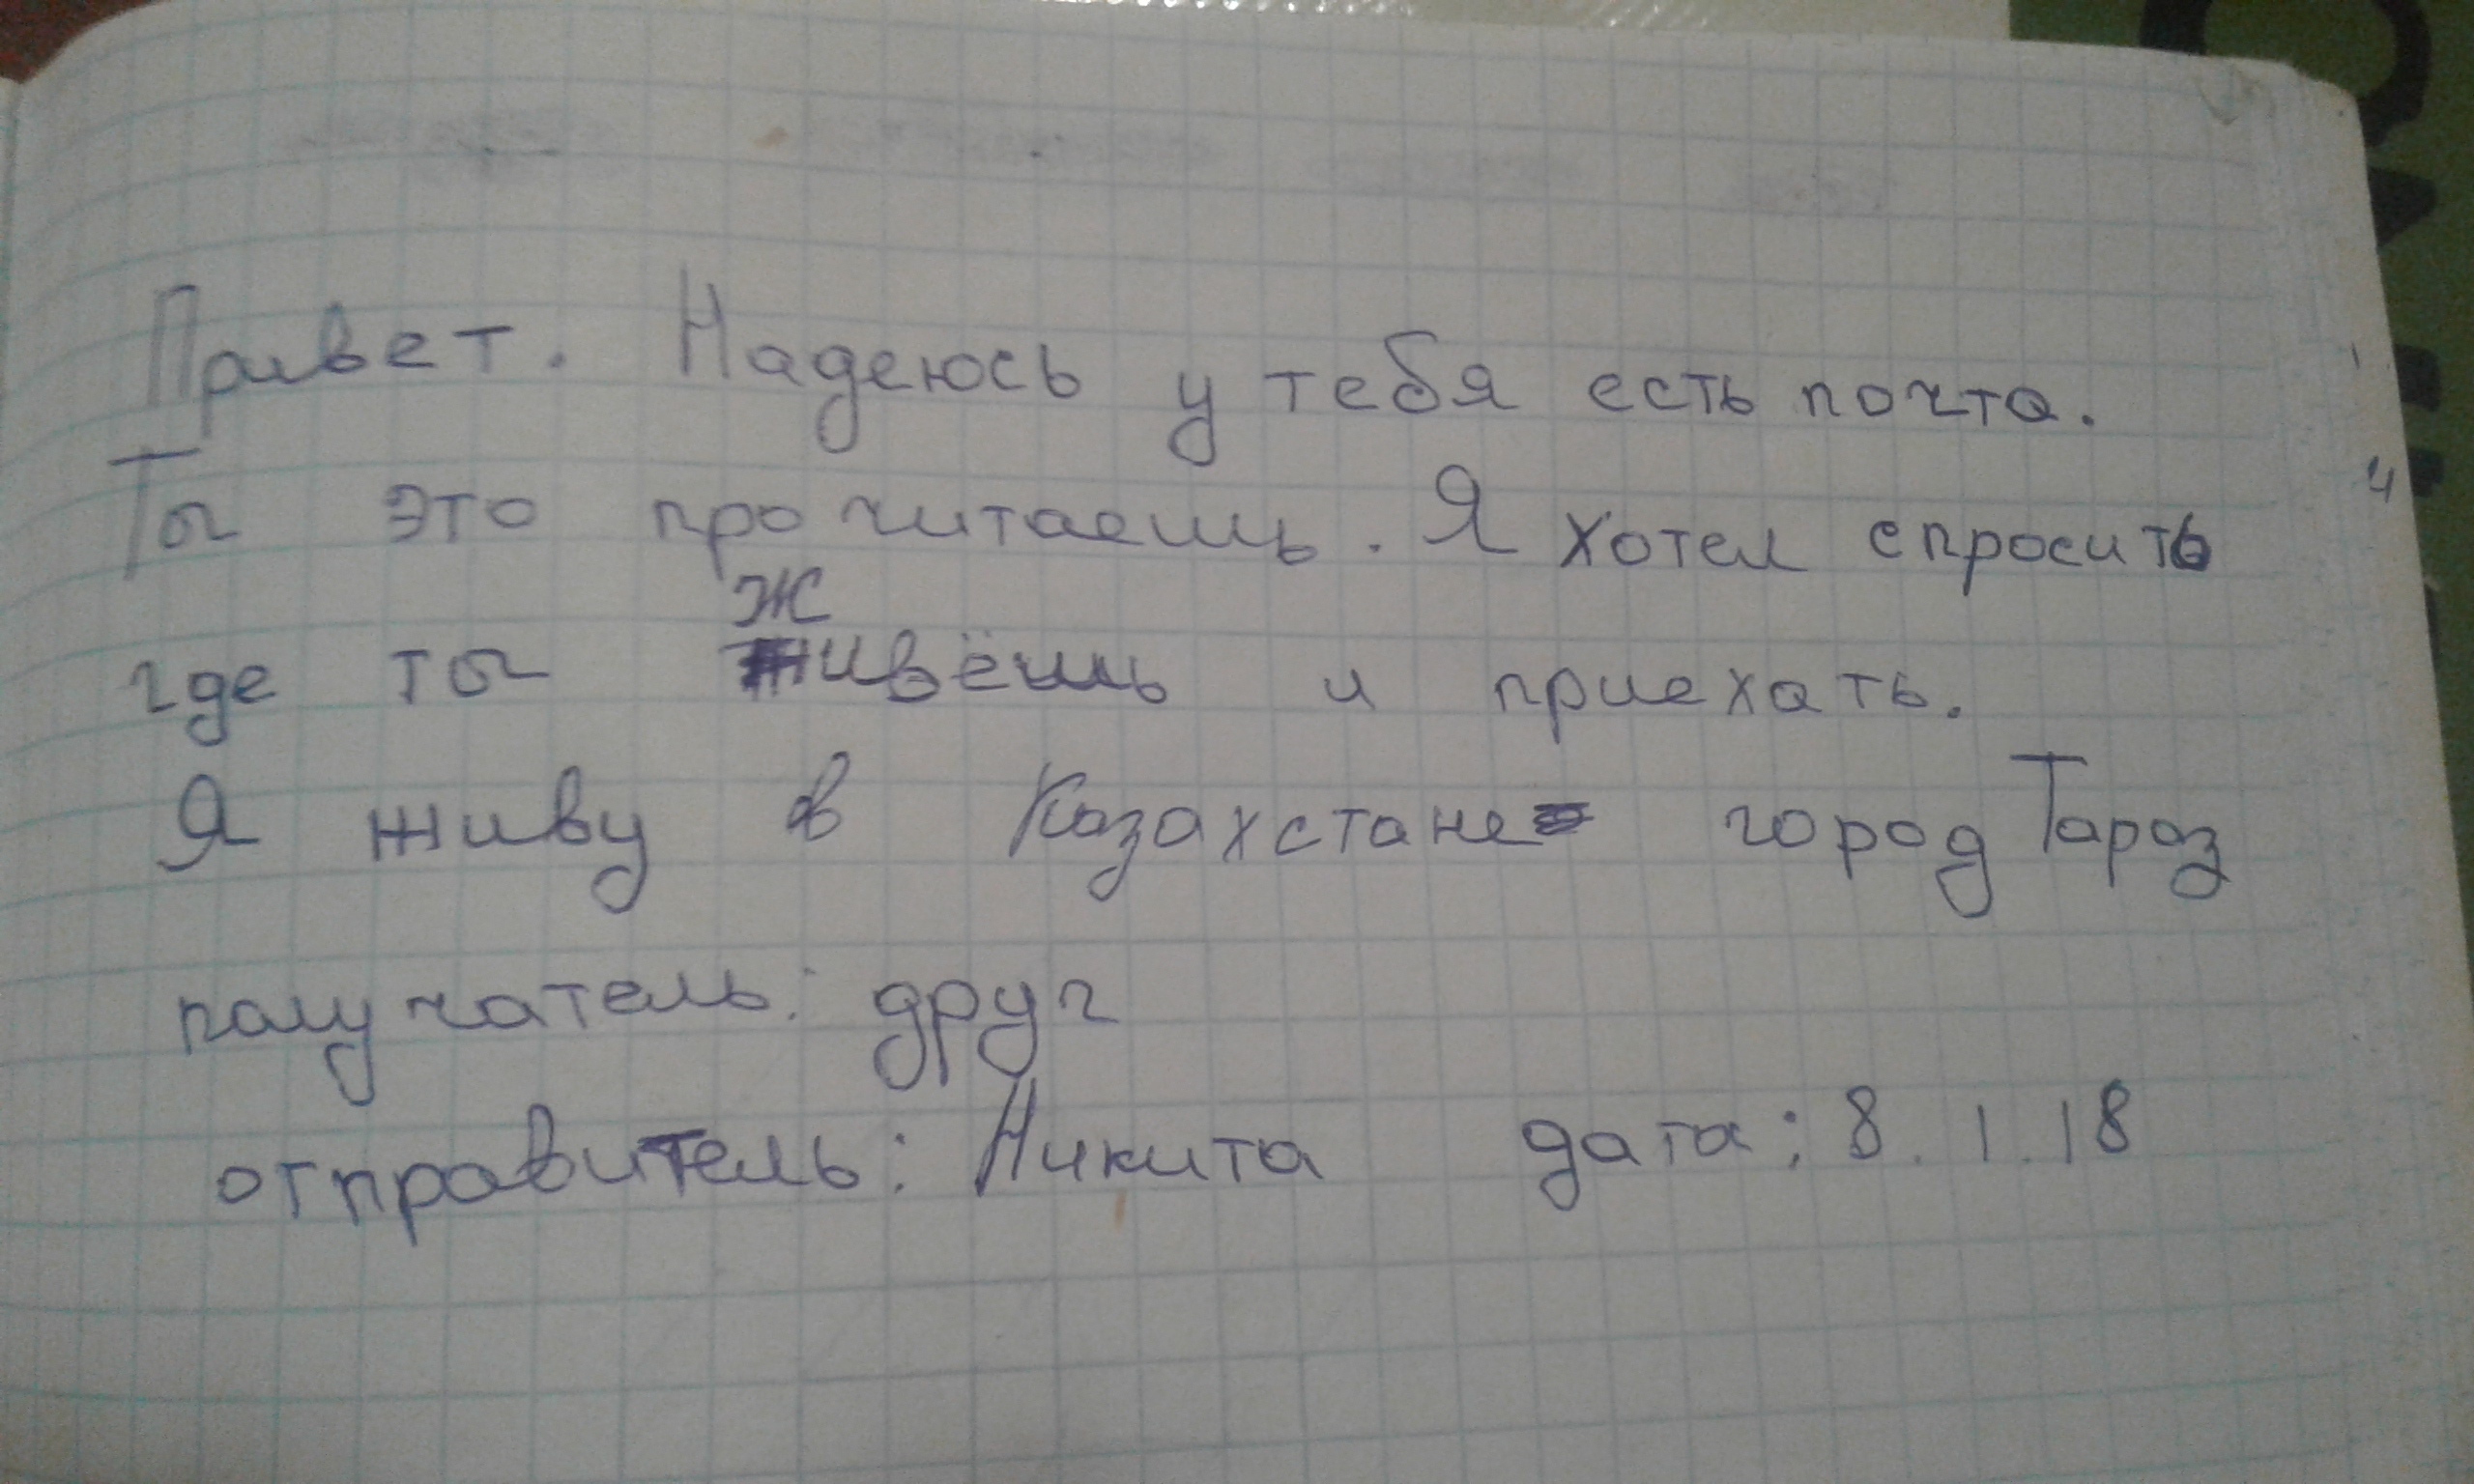 Привет. Надеюсь у тебя есть почта.
Ты это прочитаешь. Я хотел спросить
где ты живёшь и приехать.
Я живу в Казахстане город Тараз
получатель: друг
отправитель: Никита дата: 8.1.18